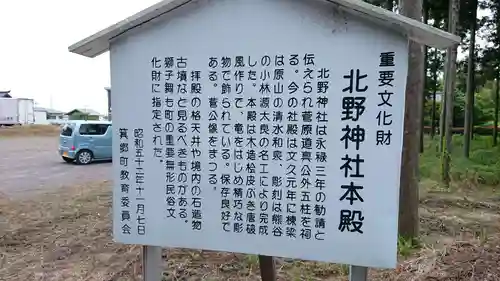 重要文化財
北野神社本殿
北野神社は永禄三年の勧請と
伝えられ菅原道真公外五柱を祠
る。今の社殿は文久元年に棟梁
は原山の清水和泉、彫刻は熊谷
の小林源太良の名工により完成
した。本殿は木造桧皮ぶき唐破
風作りで、竜をはじめ精巧な彫
物で飾られている。保存良好で
ある。菅公像をまつる。
拝殿の格天井や境内の石造物
古墳など見るべきものがある。
獅子舞も町の重要無形民俗文
化財に指定された。
昭和五十二年十一月七日
箕郷町教育委員会